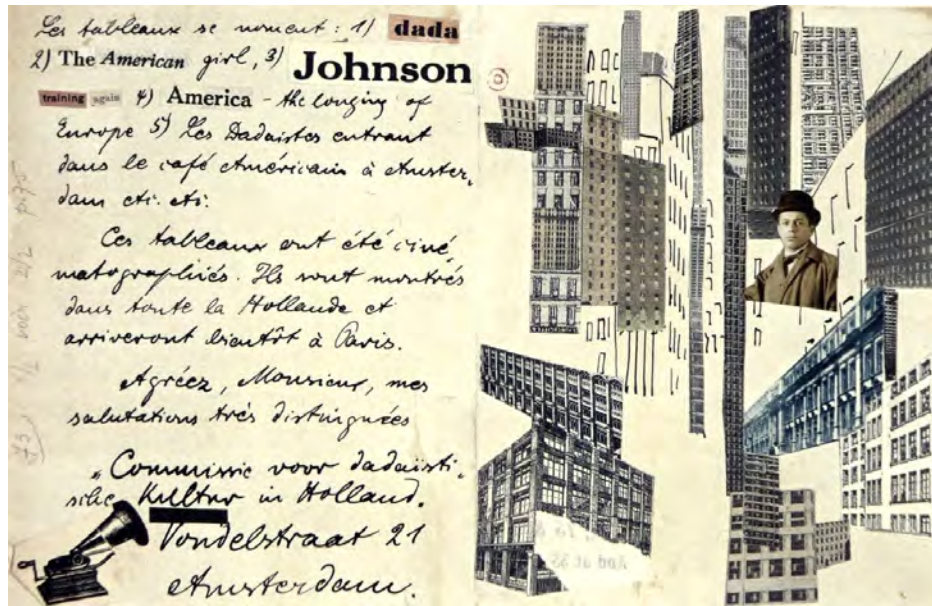 Les tableaux se noment: 1) dada
2) The American girl, 3) Johnson
training again 4) America - the longing of
Europe 5) Les Dadaistes entrant
dans le café Américain à Amster,
dam etc. etc.
Ces tableaux ont été ciné,
matographiés. Ils sont montrés
dans toute la Hollande et
arriveront bientôt à Paris.
Agréez, Monsieur, mes
salutations très distinguées
„Commissie voor dadaisti-
sche Kultur in Holland.
Vondelstraat 21
Amsterdam.